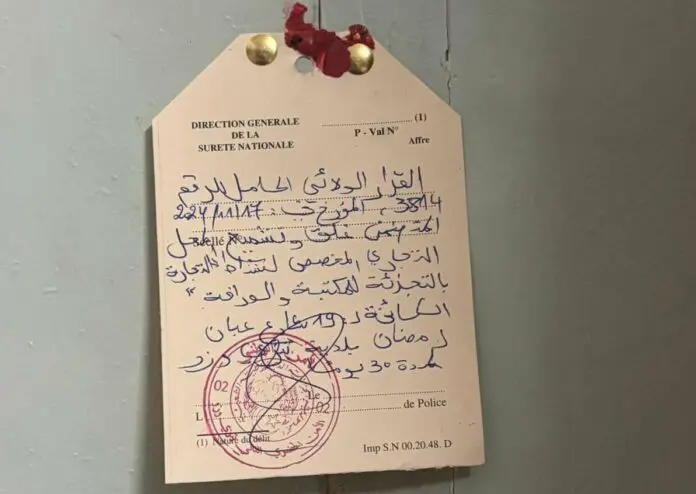 DIRECTION GENERALE
DE LA
SURETE NATIONALE
(1)
P - Val N°
Affre
القرار الولائي الحامل للرقم
المؤرخ في :
المتضمن غلق وتشميع المحل
Scellé
التجاري المخصص لنشاط "التجارة
بالتجزئة للمكتبة والوراقة "
الكائنة بـ: 19 شارع عبان
رمضان بلدية تيزي وزو
لمدة 30 يوما
Le
L de Police
(1) Nature du délit
Imp S.N 00.20.48. D
02
02